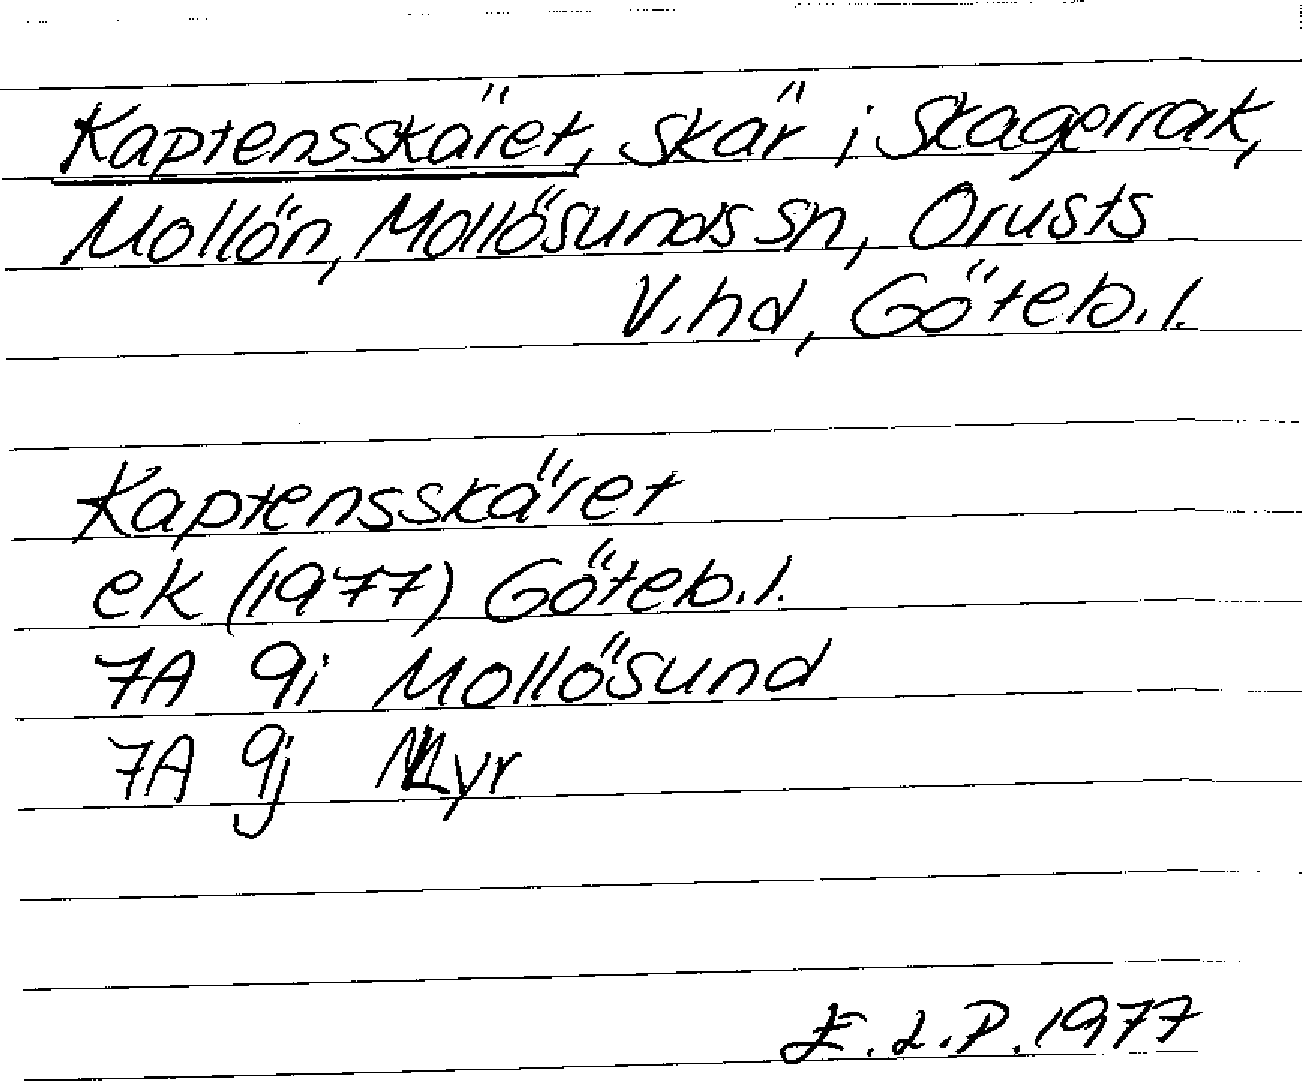 Kaptensskäret, skär i Skagerrak,
Mollön, Mollösunds sn, Orusts
V. hd, Göteb. l.
Kaptensskäret
ek (1977) Göteb. l.
7A 9i Mollösund
7A 9j Lyr
E. L. P. 1977